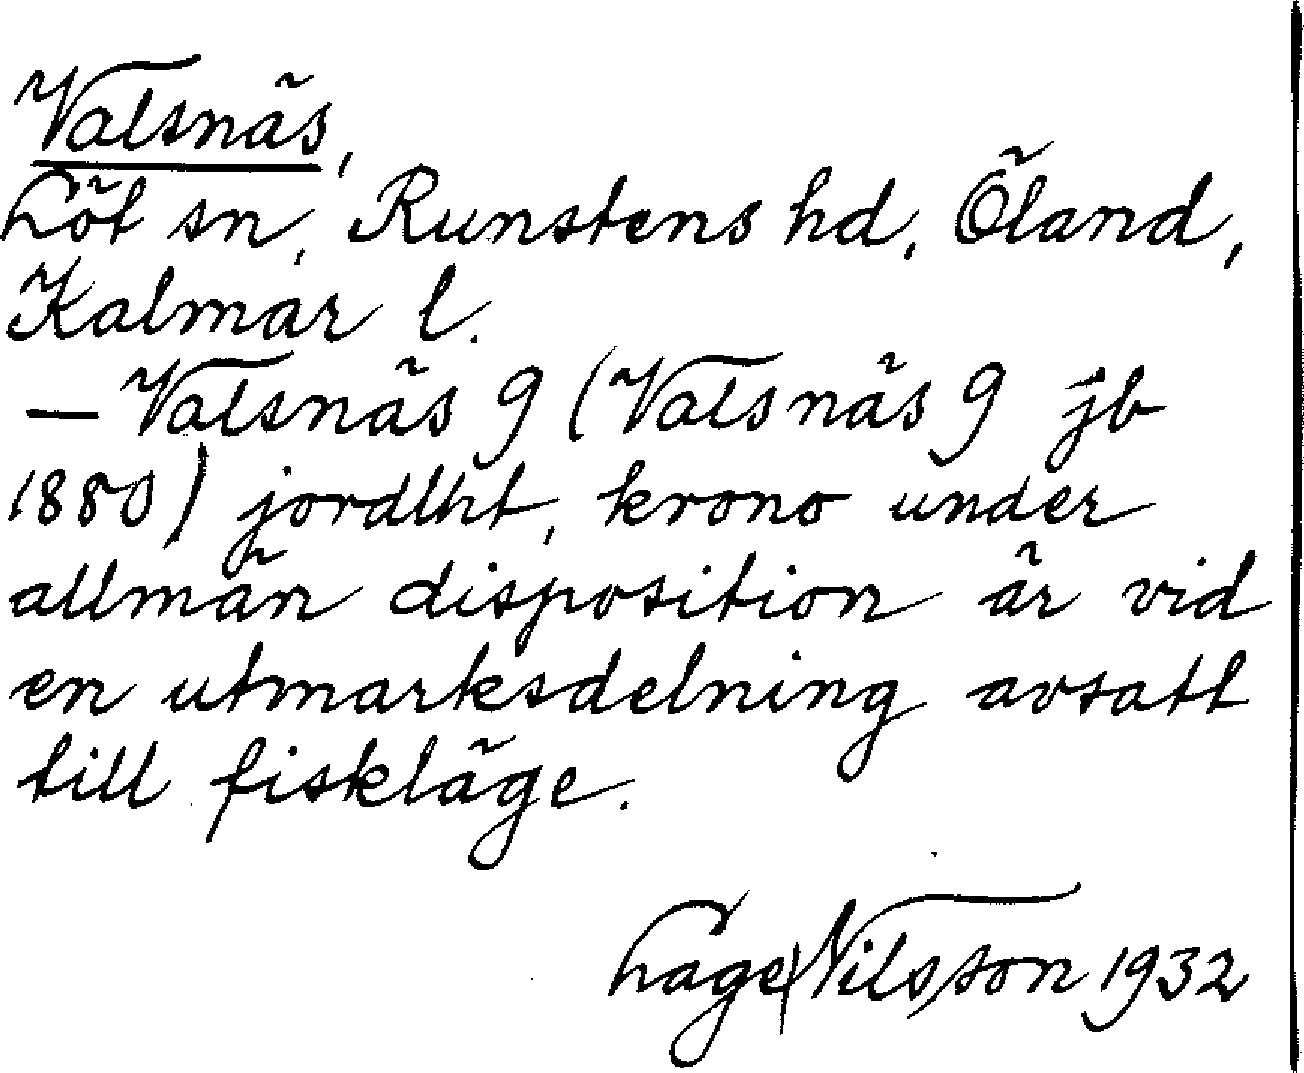 Valsnäs,
Löt sn, Runstens hd, Öland,
Kalmar l.
— Valsnäs 9 (Valsnäs 9 jb
1880) jordlht, krono under
allmän disposition är vid
en utmarksdelning avsatt
till fiskläge.
Lage Nilsson 1932